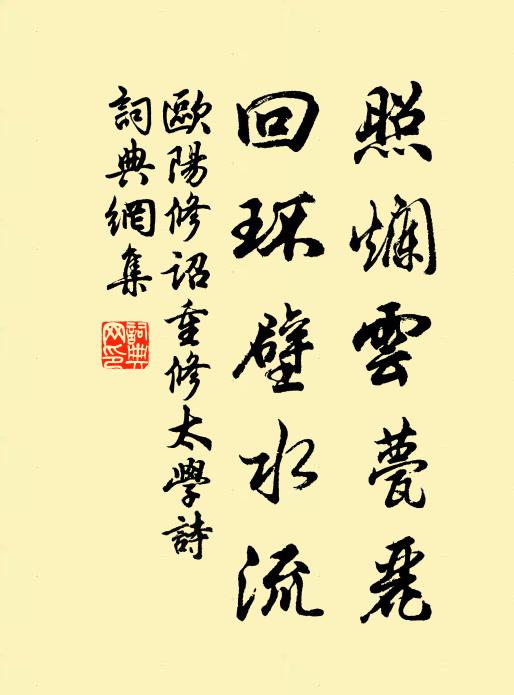 照爛雲甍麗
回环璧水流
歐陽修詔重修太學詩
詞典網集
詞典网印